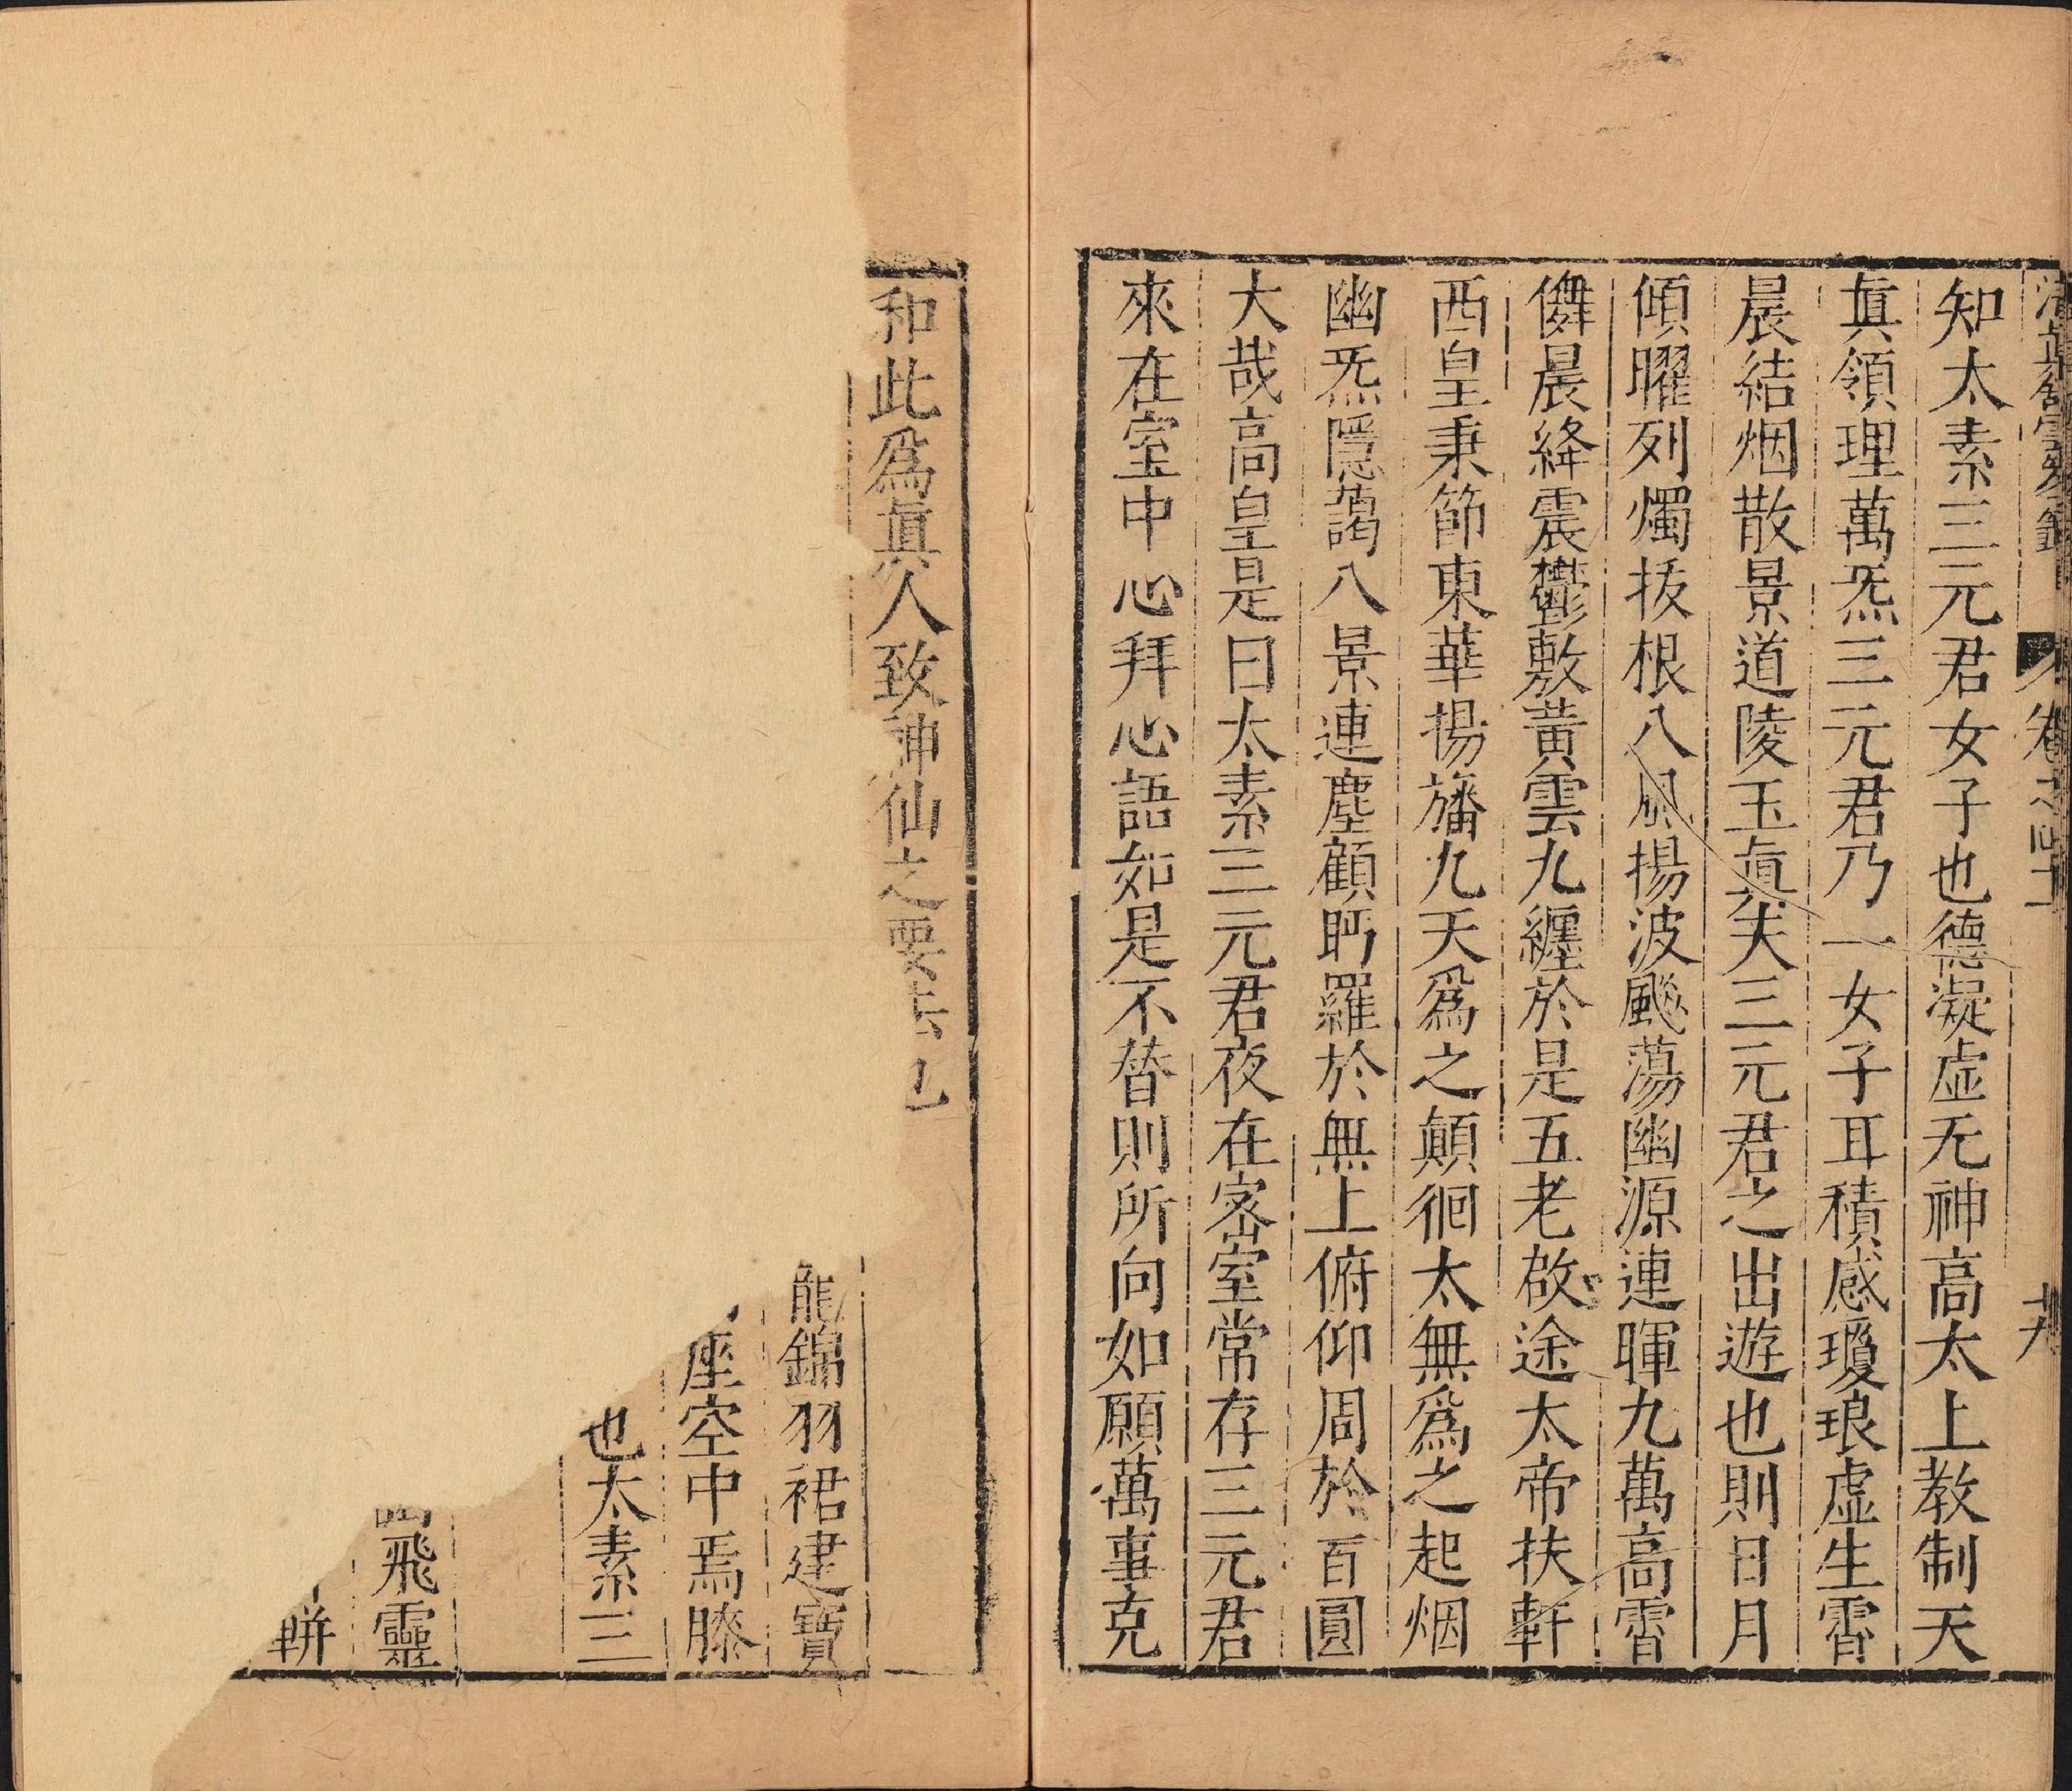 卷之四十一
十九
知太素三元君女子也德凝虛无神高太上教制天
眞領理萬炁三元君乃一女子耳積感瓊琅虛生霄
晨結烟散景道陵玉眞夫三元君之出遊也則日月
傾曜列燭拔根八風揚波飈蕩幽源連暉九萬高霄
儛晨絳震鬱敷黃雲九纏於是五老啟途太帝扶軒
西皇秉節東華揚旛九天爲之顛徊太無爲之起烟
幽炁隱藹八景連塵顧眄羅於無上俯仰周於百圓
大哉高皇是曰太素三元君夜在密室常存三元君
來在室中心拜心語如是不替則所向如願萬事克
和此爲眞人致神仙之要
龍錦羽裙建寶
座空中焉膝
也太素三
飛靈
軿